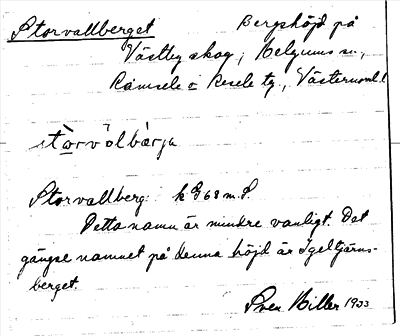 Storvallberget Bergshöjd på
Västby skog, Helgums sn.,
Ramsele o Resele tg., Västernorrl. l
stòrvòlbàrja
Storvallberg: k G 68 m. S.
Detta namn är mindre vanligt. Det
gängse namnet på denna höjd är Igeltjärns-
berget.
Sven Hiller 1933